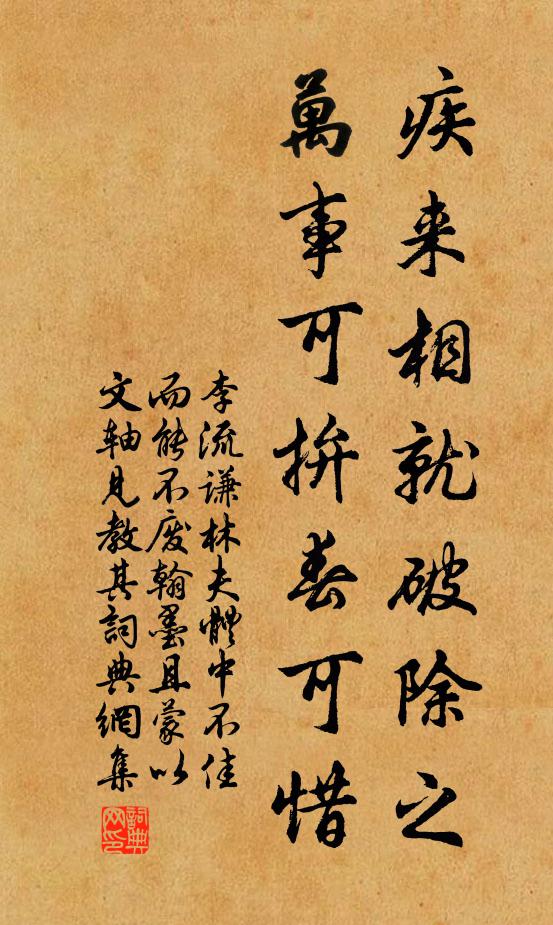 疾来相就破除之
萬事可拚春可惜
李流谦林夫體中不佳
而能不废翰墨且蒙以
文轴见教其詞典網集
詞典网印